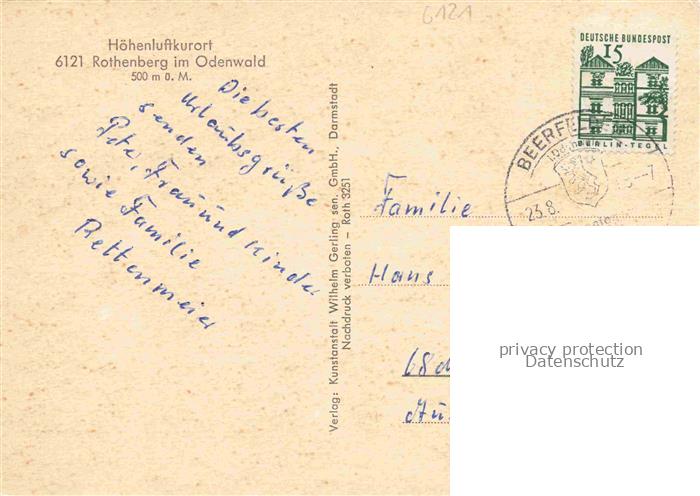 6121
Höhenluftkurort
6121 Rothenberg im Odenwald
500 m ü. M.
Die besten
Urlaubsgrüße
senden
Peter, Frau und Kinder
sowie Familie
Rettenmeier
Verlag: Kunstanstalt Wilhelm Gerling sen. GmbH., Darmstadt
Nachdruck verboten – Roth 3251
DEUTSCHE BUNDESPOST
15
BERLIN-TEGEL
BEERFEL
23.8.
-7
Familie
Hans
68
privacy protection
Datenschutz